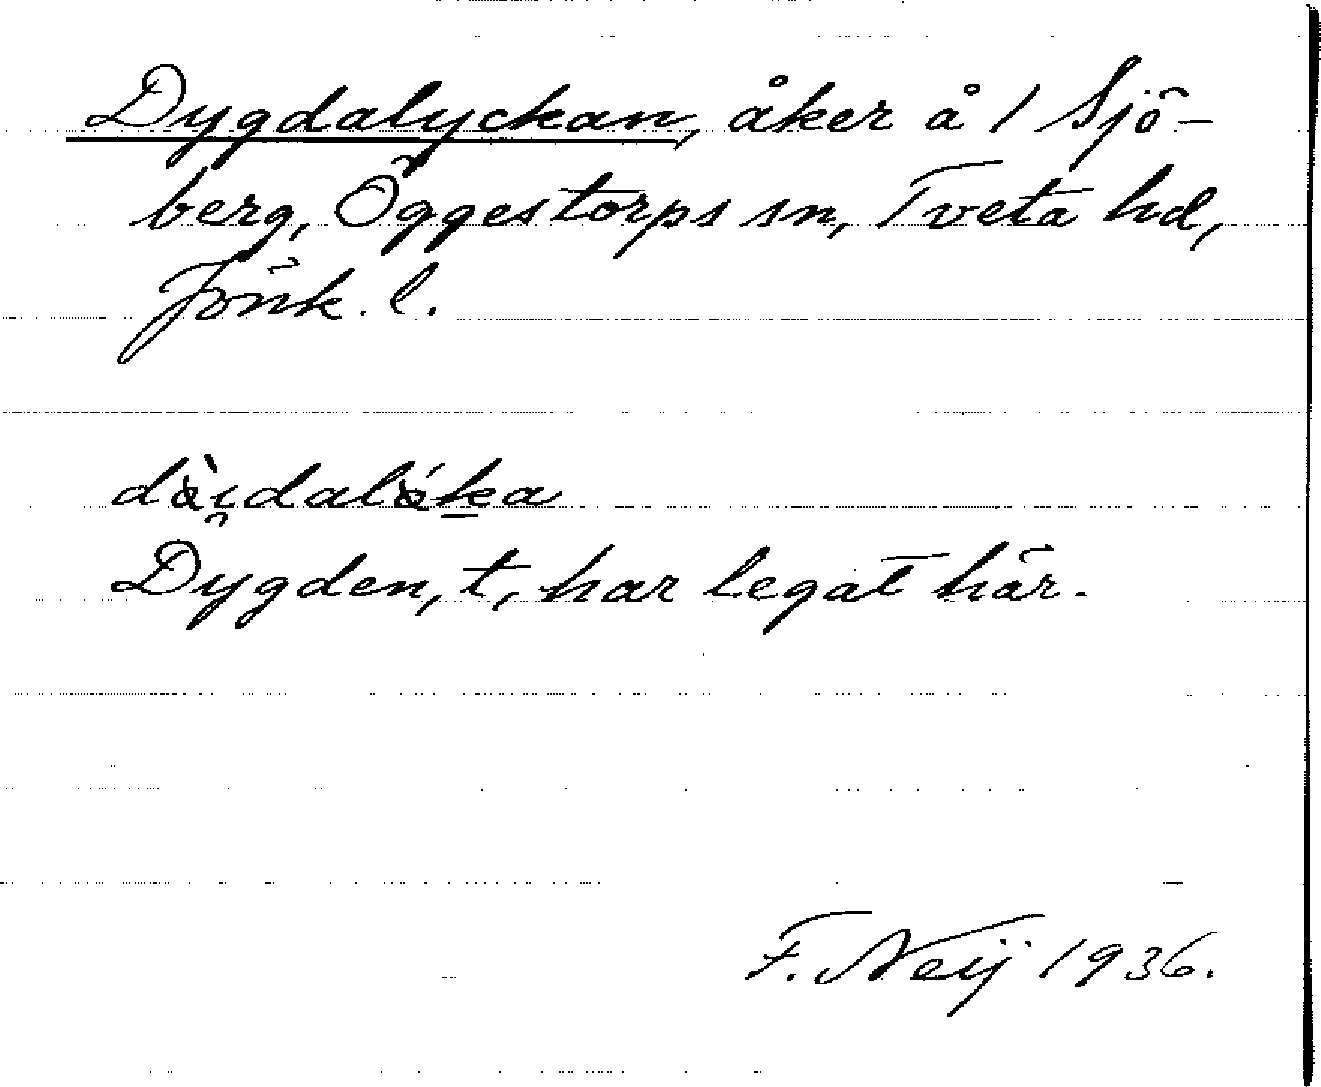 Dygdalyckan, åker å 1 Sjö-
berg, Öggestorps sn, Tveta hd,
Jönk. l.
Dygden, t, har legat här.
F. Neij 1936.